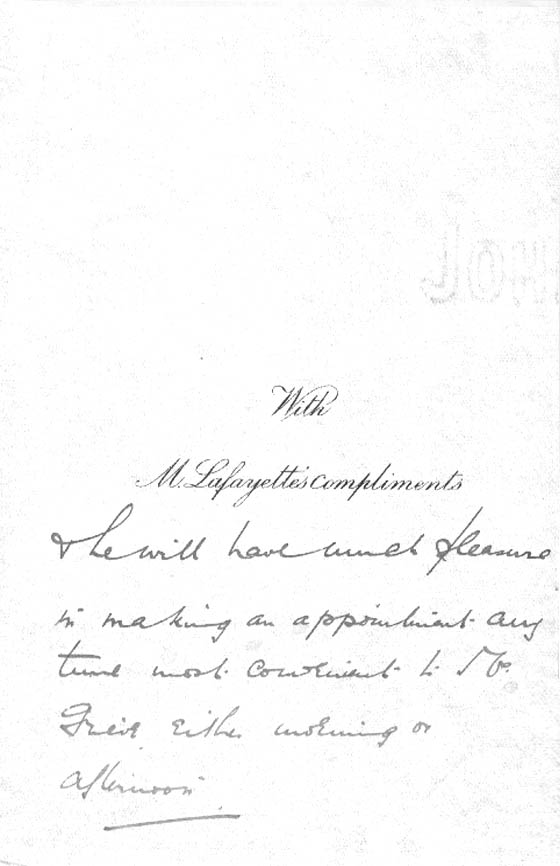 With
M. Lafayette's compliments
& he will have much pleasure
in making an appointment any
time most convenient to Mr.
either morning or
afternoon